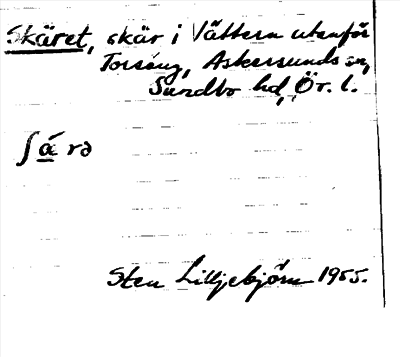 Skäret, skär i Vättern utanför
Torsäng, Askersunds sn,
Sundbo hd, Ör. l.
ʃárə
Sten Lilljebjörn 1955.